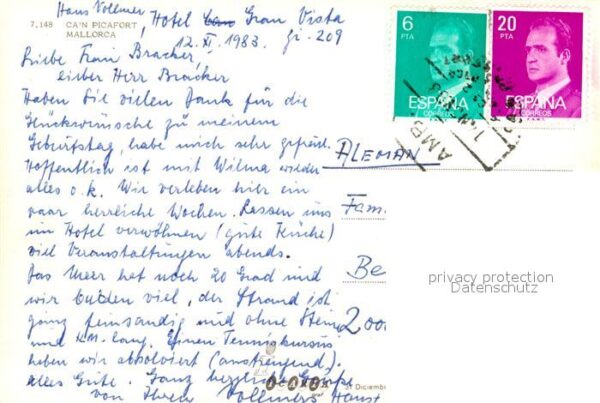 Hans Vollmer, Hotel Gran Vista
7.148 CA'N PICAFORT
MALLORCA
12. XI. 1983. Zi. 209
Liebe Frau Bracker,
lieber Herr Bracker
Haben Sie vielen Dank für die
Glückwünsche zu meinem
Geburtstag, habe mich sehr gefreut.
Hoffentlich ist mit Wilma wieder
alles o.k. Wir verleben hier ein
paar herrliche Wochen. Lassen uns
im Hotel verwöhnen (gute Küche)
viel Veranstaltungen abends.
Das Meer hat noch 20 Grad und
wir baden viel, der Strand ist
ganz feinsandig und ohne Steine
und km. lang. Einen Tenniskursus
haben wir absolviert (anstrengend).
Alles Gute. Ganz herzliche Grüße
von Ihrem Vollmers Hans
6
PTA
ESPAÑA
CORREOS
20
PTA
ESPAÑA
CORREOS
ALEMAN
Fam.
Be
2000
privacy protection
Datenschutz
31 Diciembre